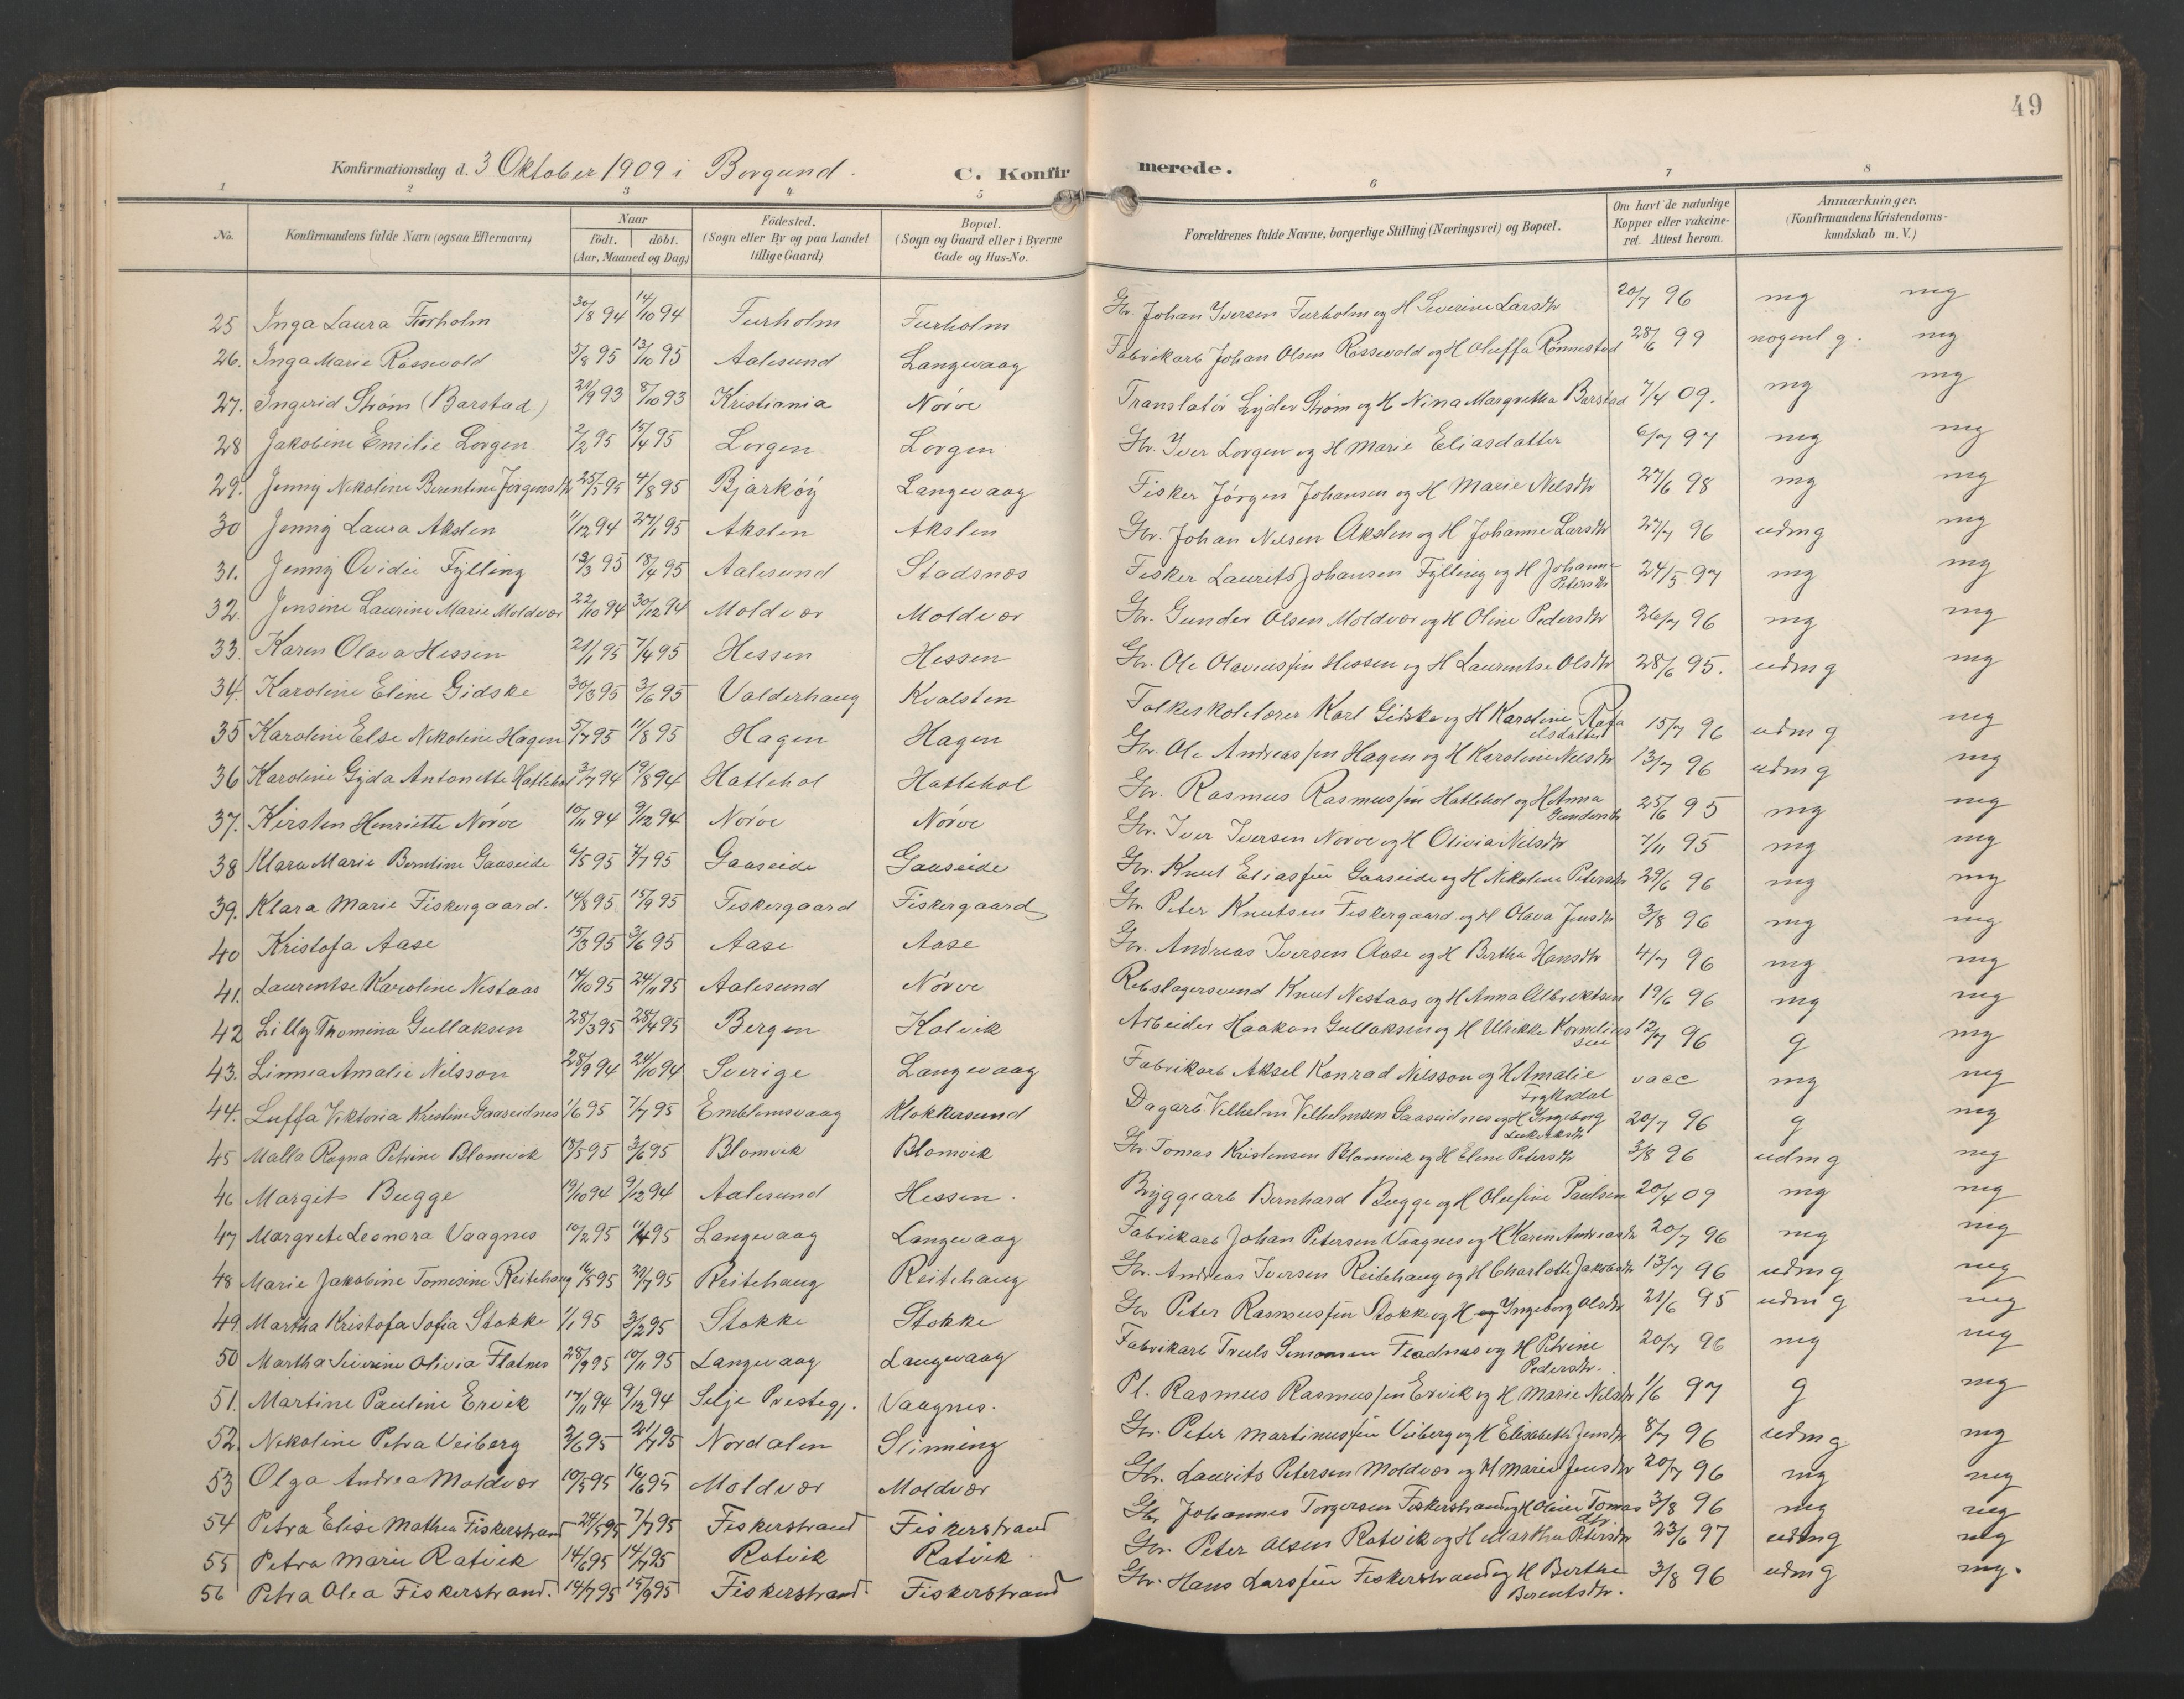 49
Konfirmationsdag d. 3 Oktober 1909 i Borgund.
C. Konfirmerede.
1 2 3 4 5 6 7 8
No. | Konfirmandens fulde Navn (ogsaa Efternavn) | Naar födt. döbt. (Aar, Maaned og Dag) | Födested. (Sogn eller By og paa Landet tillige Gaard) | Bopæl. (Sogn og Gaard eller i Byerne Gade og Hus-No. | Forældrenes fulde Navne, borgerlige Stilling (Næringsvei) og Bopæl. | Om havt de naturlige Kopper eller vakcineret. Attest herom. | Anmærkninger. (Konfirmandens Kristendomskundskab m. V.)
25 Inga Laura Furholm 30/8 94 14/10 94 Furholm Furholm Gbr. Johan Iversen Furholm og H Severine Larsdtr 20/7 96 mg mg
26. Inga Marie Røssevold 5/8 95 13/10 95 Aalesund Langevaag Fabrikarb Johan Olsen Røssevold og H Oluffa Rønnestad 28/6 99 nogenl g. mg
27. Ingerid Strøm (Barstad) 21/9 93 8/10 93 Kristiania Nörve Translatör Lyder Strøm og H Nina Margretha Barstad 7/4 09. mg mg
28 Jakobine Emilie Lorgen 2/2 95 15/4 95 Lorgen Lorgen Gbr. Iver Lorgen og H Marie Eliasdatter 6/7 97 mg mg
29. Jenny Nikoline Berentine Jörgensdtr 25/5 95 4/8 95 Bjarköy Langevaag Fisker Jörgen Johansen og H Marie Nelsdtr 27/6 98 mg mg
30 Jenny Laura Akslen 11/12 94 27/1 95 Akslen Akslen Gbr. Johan Nelsen Akslen og H Johanne Larsdtr 27/7 96 udmg mg
31. Jenny Ovidie Fylling 13/3 95 18/4 95 Aalesund Stadsnes Fisker Laurits Johansen Fylling og H Johanne Petersdtr 24/5 97 mg mg
32. Jensine Laurine Marie Moldvær 22/10 94 30/12 94 Moldvær Moldvær Gbr. Gunder Olsen Moldvær og H Oline Pedersdtr 26/7 96 mg mg
33. Karen Olava Hessen 21/1 95 7/4 95 Hessen Hessen Gbr. Ole Olaveussen Hessen og H Laurentse Olsdtr 28/6 95. udmg mg
34. Karoline Eline Gidske 30/3 95 3/6 95 Valderhaug Kvalsten Folkeskolelærer Karl Gidske og H Karoline Rafaelsdatter 15/7 96 udmg mg
35 Karoline Else Nikoline Hagen 5/7 95 11/8 95 Hagen Hagen Gbr. Ole Andreassen Hagen og H Karoline Nelsdtr 13/7 96 udmg mg
36 Karoline Gyda Antonette Hatlehol 3/7 94 19/8 94 Hatlehol Hatlehol Gbr. Rasmus Rasmussen Hatlehol og H Anna Gundersdtr 25/6 95 mg mg
37. Kirsten Henriette Nörve 10/11 94 9/12 94 Nörve Nörve Gbr. Iver Iversen Nörve og H Olivia Nilsdtr 7/11 95 mg mg
38 Klara Marie Berntine Gaaseide 6/5 95 7/7 95 Gaaseide Gaaseide Gbr. Knut Eliassen Gaaseide og H Nikoline Petersdtr 29/6 96 mg mg
39. Klara Marie Fiskergaard. 14/8 95 15/9 95 Fiskergaard Fiskergaard Gbr. Peter Knutsen Fiskergaard og H Olava Jensdtr 3/8 96 mg mg
40 Kristofa Aase 15/3 95 3/6 95 Aase Aase Gbr. Andreas Iversen Aase og H Bertha Hansdtr 4/7 96 mg mg
41. Laurentse Karoline Nestaas 14/10 95 24/11 95 Aalesund Nörve Rebslagersvend Knut Nestaas og H Anna Albrektsen 19/6 96 mg mg
42 Lilly Thomina Gullaksen 28/3 95 28/4 95 Bergen Kalvik Arbeider Haakon Gullaksen og H Ulrikke Korneliussen 12/7 96 g mg
43. Linnea Amalie Nilsson 28/9 94 24/10 94 Sverige Langevaag Fabrikarb Aksel Konrad Nilsson og H Amalie Fryksdal vacc mg mg
44. Luffa Viktoria Kristine Gaaseidnes 1/6 95 7/7 95 Emblemsvaag Klokkersund Dagarb Vilhelm Vilhelmsen Gaaseidnes og H Ingeborg 20/7 96 g mg
45 Malla Ragna Petrine Blomvik 18/5 95 3/6 95 Blomvik Blomvik Gbr. Tomas Kristensen Blomvik og H Eline Petersdtr 3/8 96 udmg mg
46 Margit Bugge 19/10 94 9/12 94 Aalesund Hessen. Bryggearb Bernhard Bugge og H Olufine Paulsen 20/4 09 mg mg
47 Margrete Leonora Vaagnes 10/2 95 11/4 95 Langevaag Langevaag Fabrikarb Johan Petersen Vaagnes og H Karen Andreasdtr 20/7 96 mg mg
48 Marie Jakobine Tomesine Reitehaug 16/5 95 21/7 95 Reitehaug Reitehaug Gbr. Andreas Iversen Reitehaug og H Charlotte Jakobsdtr 13/7 96 udmg mg
49. Martha Kristofa Sofia Stokke 1/1 95 3/2 95 Stokke Stokke Gbr Peter Rasmussen Stokke og H og Ingeborg Olsdtr 21/6 95 udmg mg
50 Martha Siverine Olivia Flatnes 28/9 95 10/11 95 Langevaag Langevaag Fabrikarb Truls Simonsen Fladnes og H Petrine Pedersdtr. 20/7 96 mg mg
51. Martine Pauline Ervik 17/11 94 9/12 94 Selje Prestegj. Vaagnes. Pl. Rasmus Rasmussen Ervik og H Marie Nilsdtr 1/6 97 g mg
52. Nikoline Petra Veiberg 2/6 95 21/7 95 Nordalen Slinning Gbr. Peter Martinussen Veiberg og H Elisabeth Jensdtr 8/7 96 udmg mg
53 Olga Andrea Moldvær 10/5 95 16/6 95 Moldvær Moldvær Gbr. Laurits Petersen Moldvær og H Marie Jensdtr 20/7 96 mg mg
54 Petra Elise Mathea Fiskerstrand 24/5 95 7/7 95 Fiskerstrand Fiskerstrand Gbr Johannes Torgersen Fiskerstrand og H Oline Tomasdtr. 3/8 96 mg mg
55 Petra Marie Ratvik 14/6 95 14/7 95 Ratvik Ratvik Gbr. Peter Olsen Ratvik og H Martha Petersdtr 23/6 97 udmg mg
56 Petra Olea Fiskerstrand. 14/7 95 15/9 95 Fiskerstrand. Fiskerstrand Gbr. Hans Larssen Fiskerstrand og H Berthe Berentsdtr. 3/8 96 udmg mg.